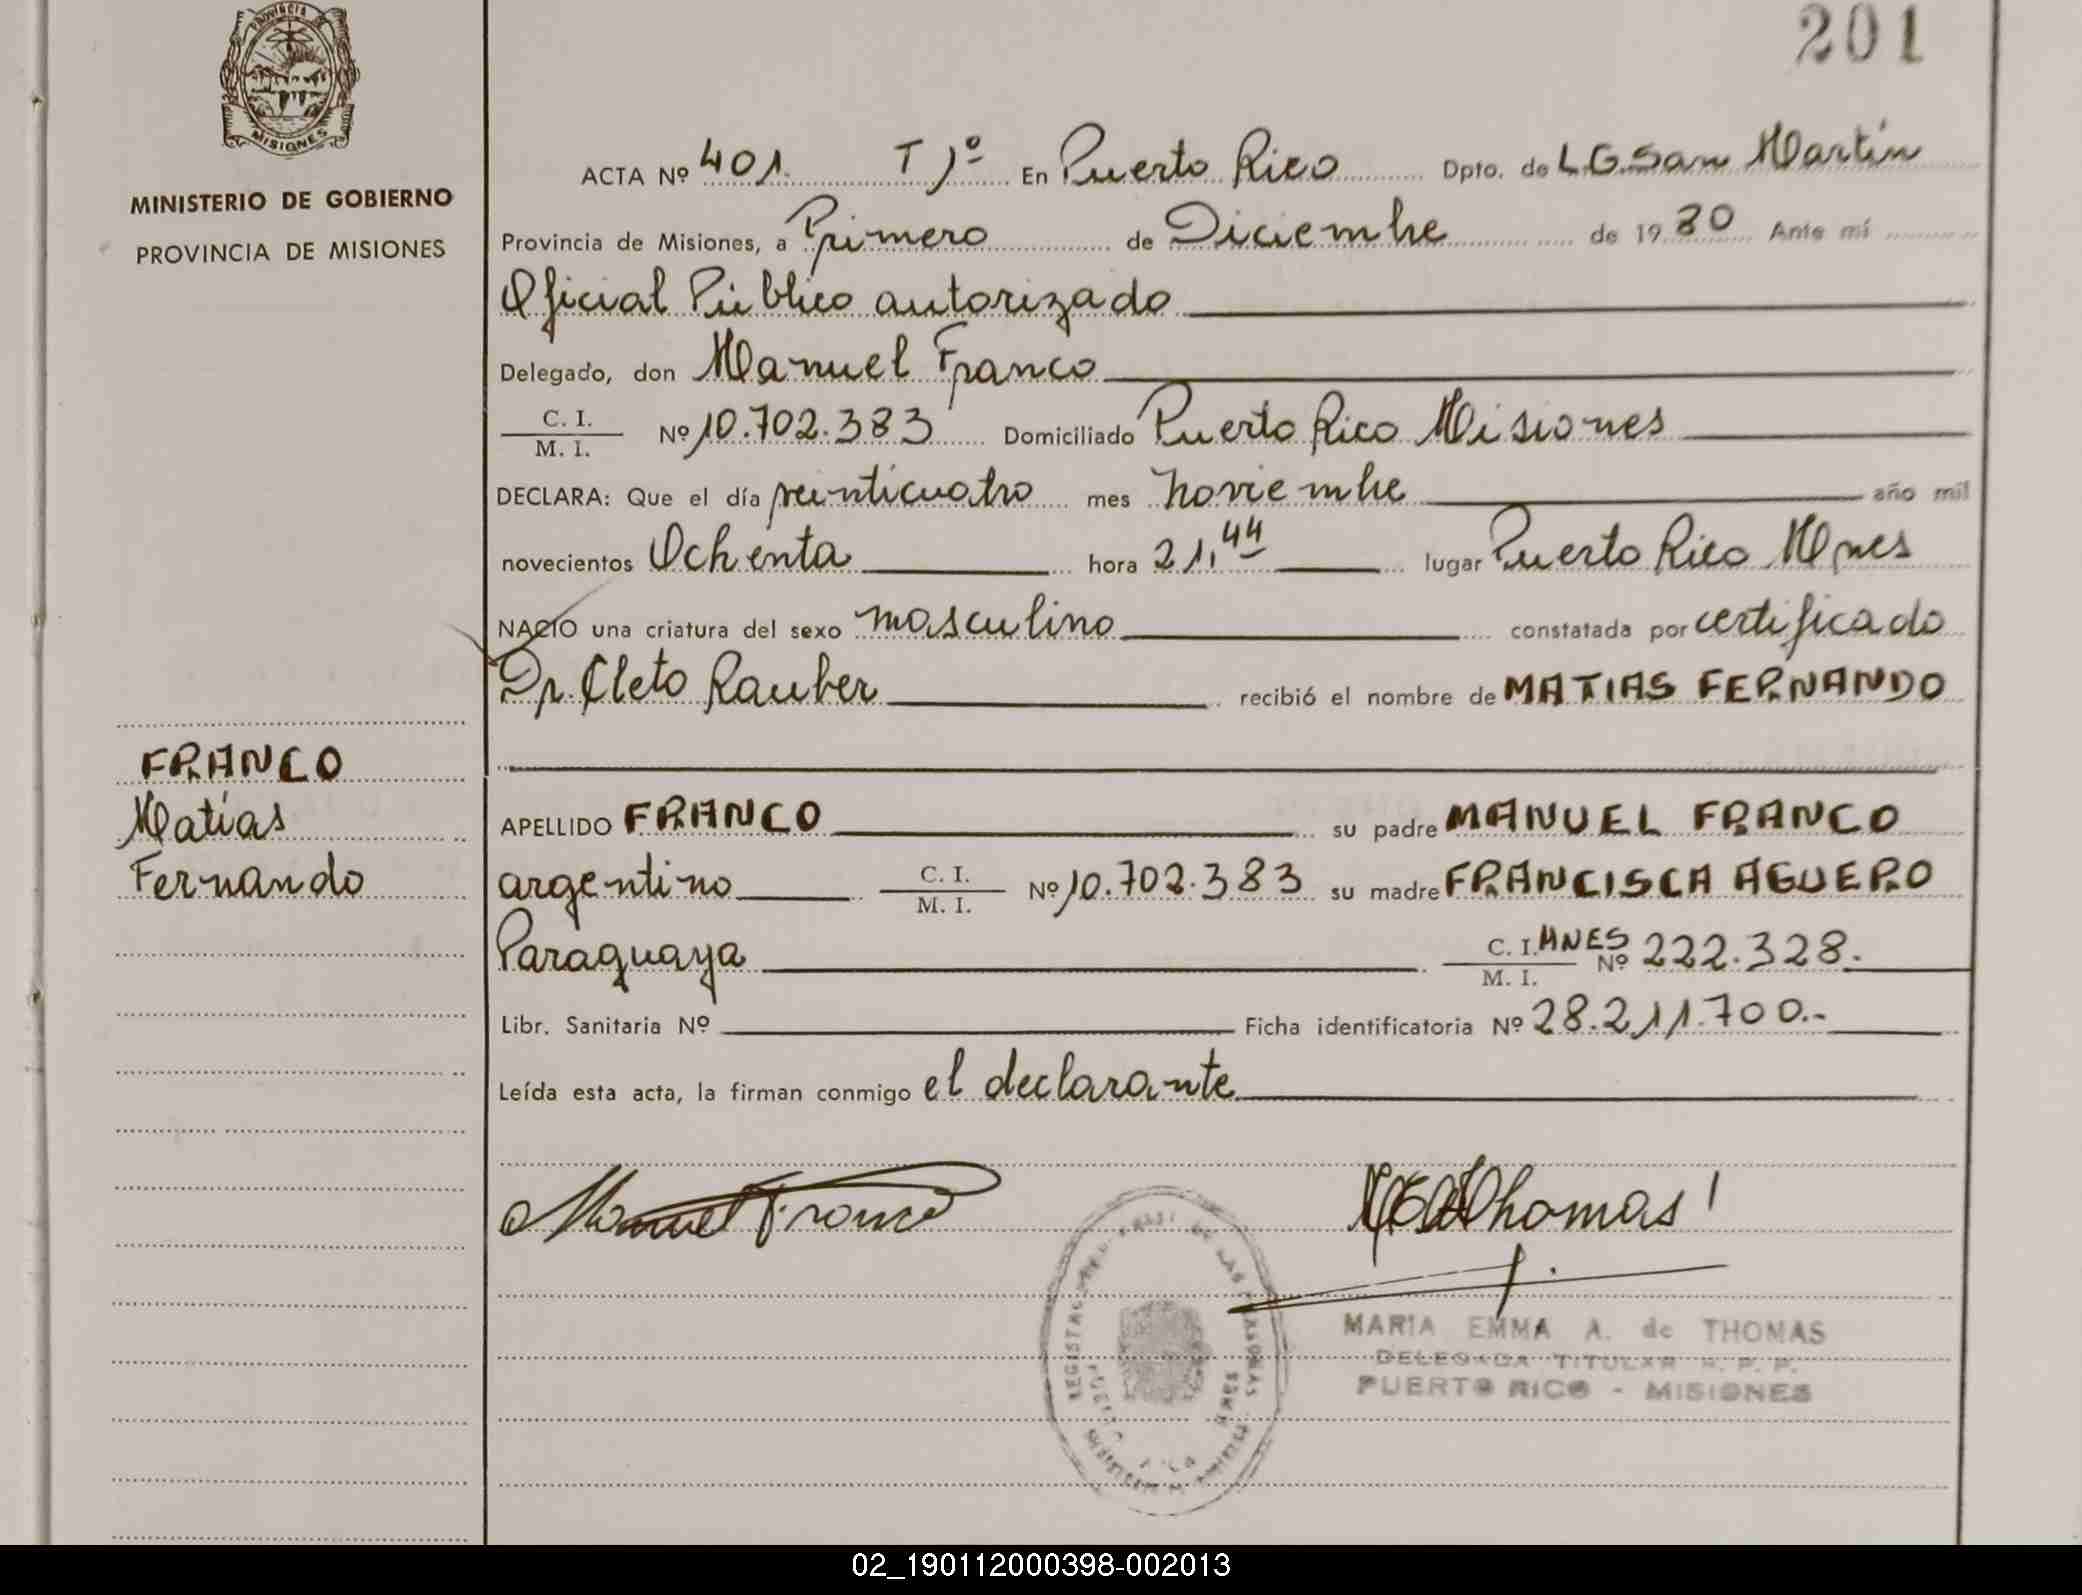 201
PROVINCIA DE
MISIONES
MINISTERIO DE GOBIERNO
PROVINCIA DE MISIONES
ACTA Nº 401. T 1º En Puerto Rico Dpto. de L.G.San Martín
Provincia de Misiones, a Primero de Diciembre de 1980 Ante mí
Oficial Público autorizado
Delegado, don Manuel Franco
C. I.
M. I. Nº 10.702.383 Domiciliado Puerto Rico Misiones
DECLARA: Que el día veinticuatro mes noviembre año mil
novecientos Ochenta hora 21,44 lugar Puerto Rico Mnes
NACIO una criatura del sexo masculino constatada por certificado
Dr. Cleto Rauber recibió el nombre de MATIAS FERNANDO
FRANCO
Matías
Fernando
APELLIDO FRANCO su padre MANUEL FRANCO
argentino C. I.
M. I. Nº 10.702.383 su madre FRANCISCA AGUERO
Paraguaya C. I. MNES
M. I. Nº 222.328.
Libr. Sanitaria Nº Ficha identificatoria Nº 28.211.700.-
Leída esta acta, la firman conmigo el declarante
Manuel Franco
Thomas
MARIA EMMA A. de THOMAS
DELEGADA TITULAR R. P. P.
PUERTO RICO - MISIONES
02_190112000398-002013